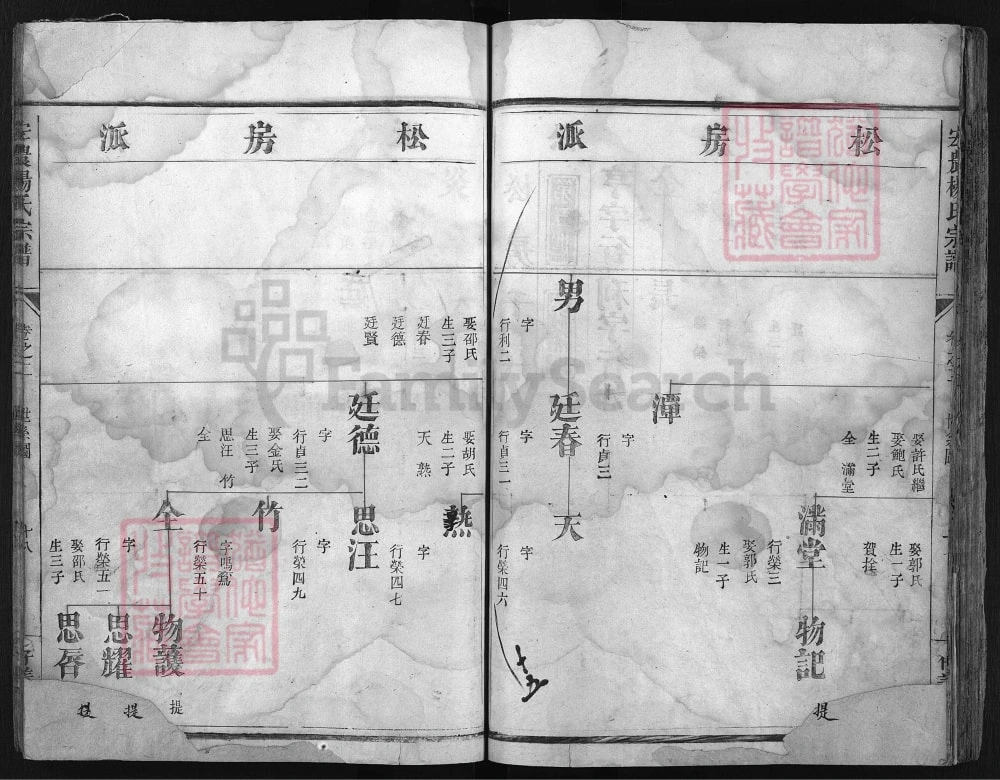 宏農楊氏宗譜
松房派
娶許氏繼
娶鮑氏
生二子
全 滿堂
潭
字
行貞三
男
字
行利二
娶邵氏
生三子
廷春
廷德
廷賢
廷春
字
行貞三一
娶胡氏
生二子
天 熟
廷德
字
行貞三二
娶金氏
生三子
思汪 竹
全
娶郭氏
生一子
賀拴
滿堂
行榮三
娶郭氏
生一子
物記
天
字
行榮四六
熟
字
行榮四七
思汪
字
行榮四九
竹
字鳴鶩
行榮五十
全
字
行榮五一
娶邵氏
生三子
物記
物護
思耀
思唇
提
提
提
提
十五
松房派
宏農楊氏宗譜
卷之二
世系圖
十八
FamilySearch